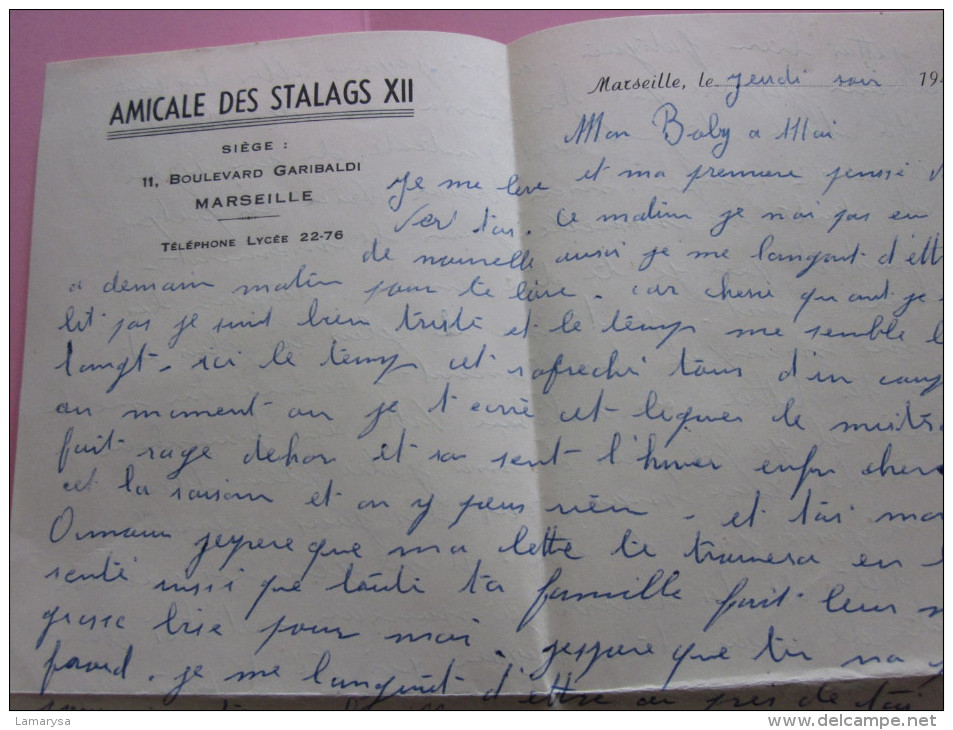 AMICALE DES STALAGS XII
SIÈGE :
11, BOULEVARD GARIBALDI
MARSEILLE
TÉLÉPHONE LYCÉE 22-76
Marseille, le Jeudi soir 194
Mon Baby a Moi
Je me leve et ma premiere pensé
Ver toi. Ce matin je nai pas eu
de nouvelle aussi je me languit d'ettr
a demain matin pour te lire. car cherie quant je
lit pas je suit bien triste et le temp me semble
longt. ici le temp cet rafreché tous d'un coup
au moment ou je t ecrie cet ligner le mistr
fait rage dehor et sa sent l'hiver enfin cher
cet la saison et on y peus rien. et toi mon
Oumour jespere que ma lettre te trouvera en
senté aussi que toute ta famille fait leur
grosse bise pour moi. jespere que tu na
favard. je me languit d'ettre au pres de toi
Lamarysa
www.delcampe.net